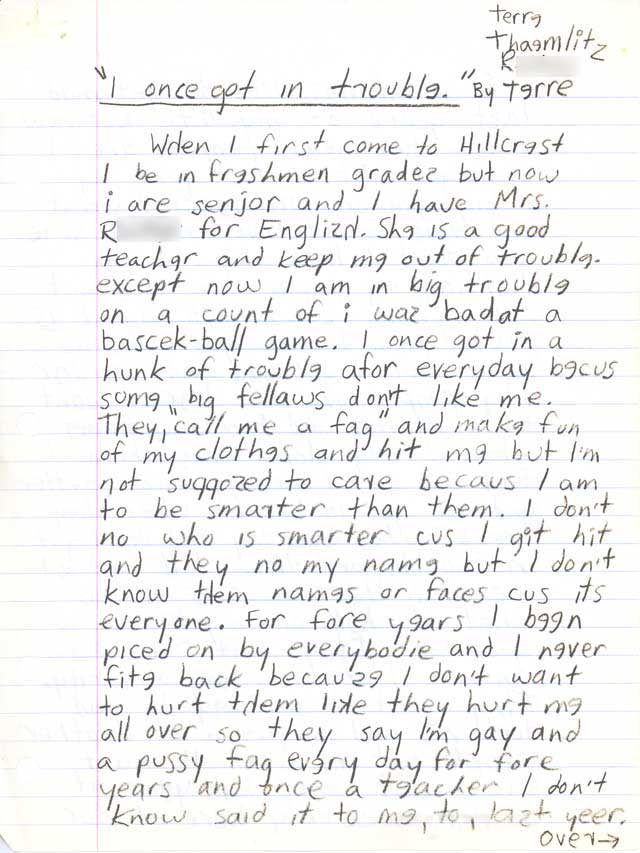 terry
Thaemlitz
R
"I once got in trouble." By Terre
Wden I first come to Hillcrest
I be in freshmen gradez but now
i are senjor and I have Mrs.
R for Englizd. She is a good
teacher and keep me out of trouble.
except now I am in big trouble
on a count of i waz bad at a
bascek-ball game. I once got in a
hunk of trouble afor everyday becus
some big fellaws don't like me.
They, "call me a fag" and make fun
of my clothes and hit me but I'm
not suqqozed to care becaus I am
to be smarter than them. I don't
no who is smarter cus I git hit
and they no my name but I don't
know tdem names or faces cus its
everyone. For fore years I been
piced on by everybodie and I never
fite back becauze I don't want
to hurt tdem like they hurt me
all over so they say I'm gay and
a pussy fag every day for fore
years and once a teacher I don't
know said it to me, to, lazt yeer.
over→